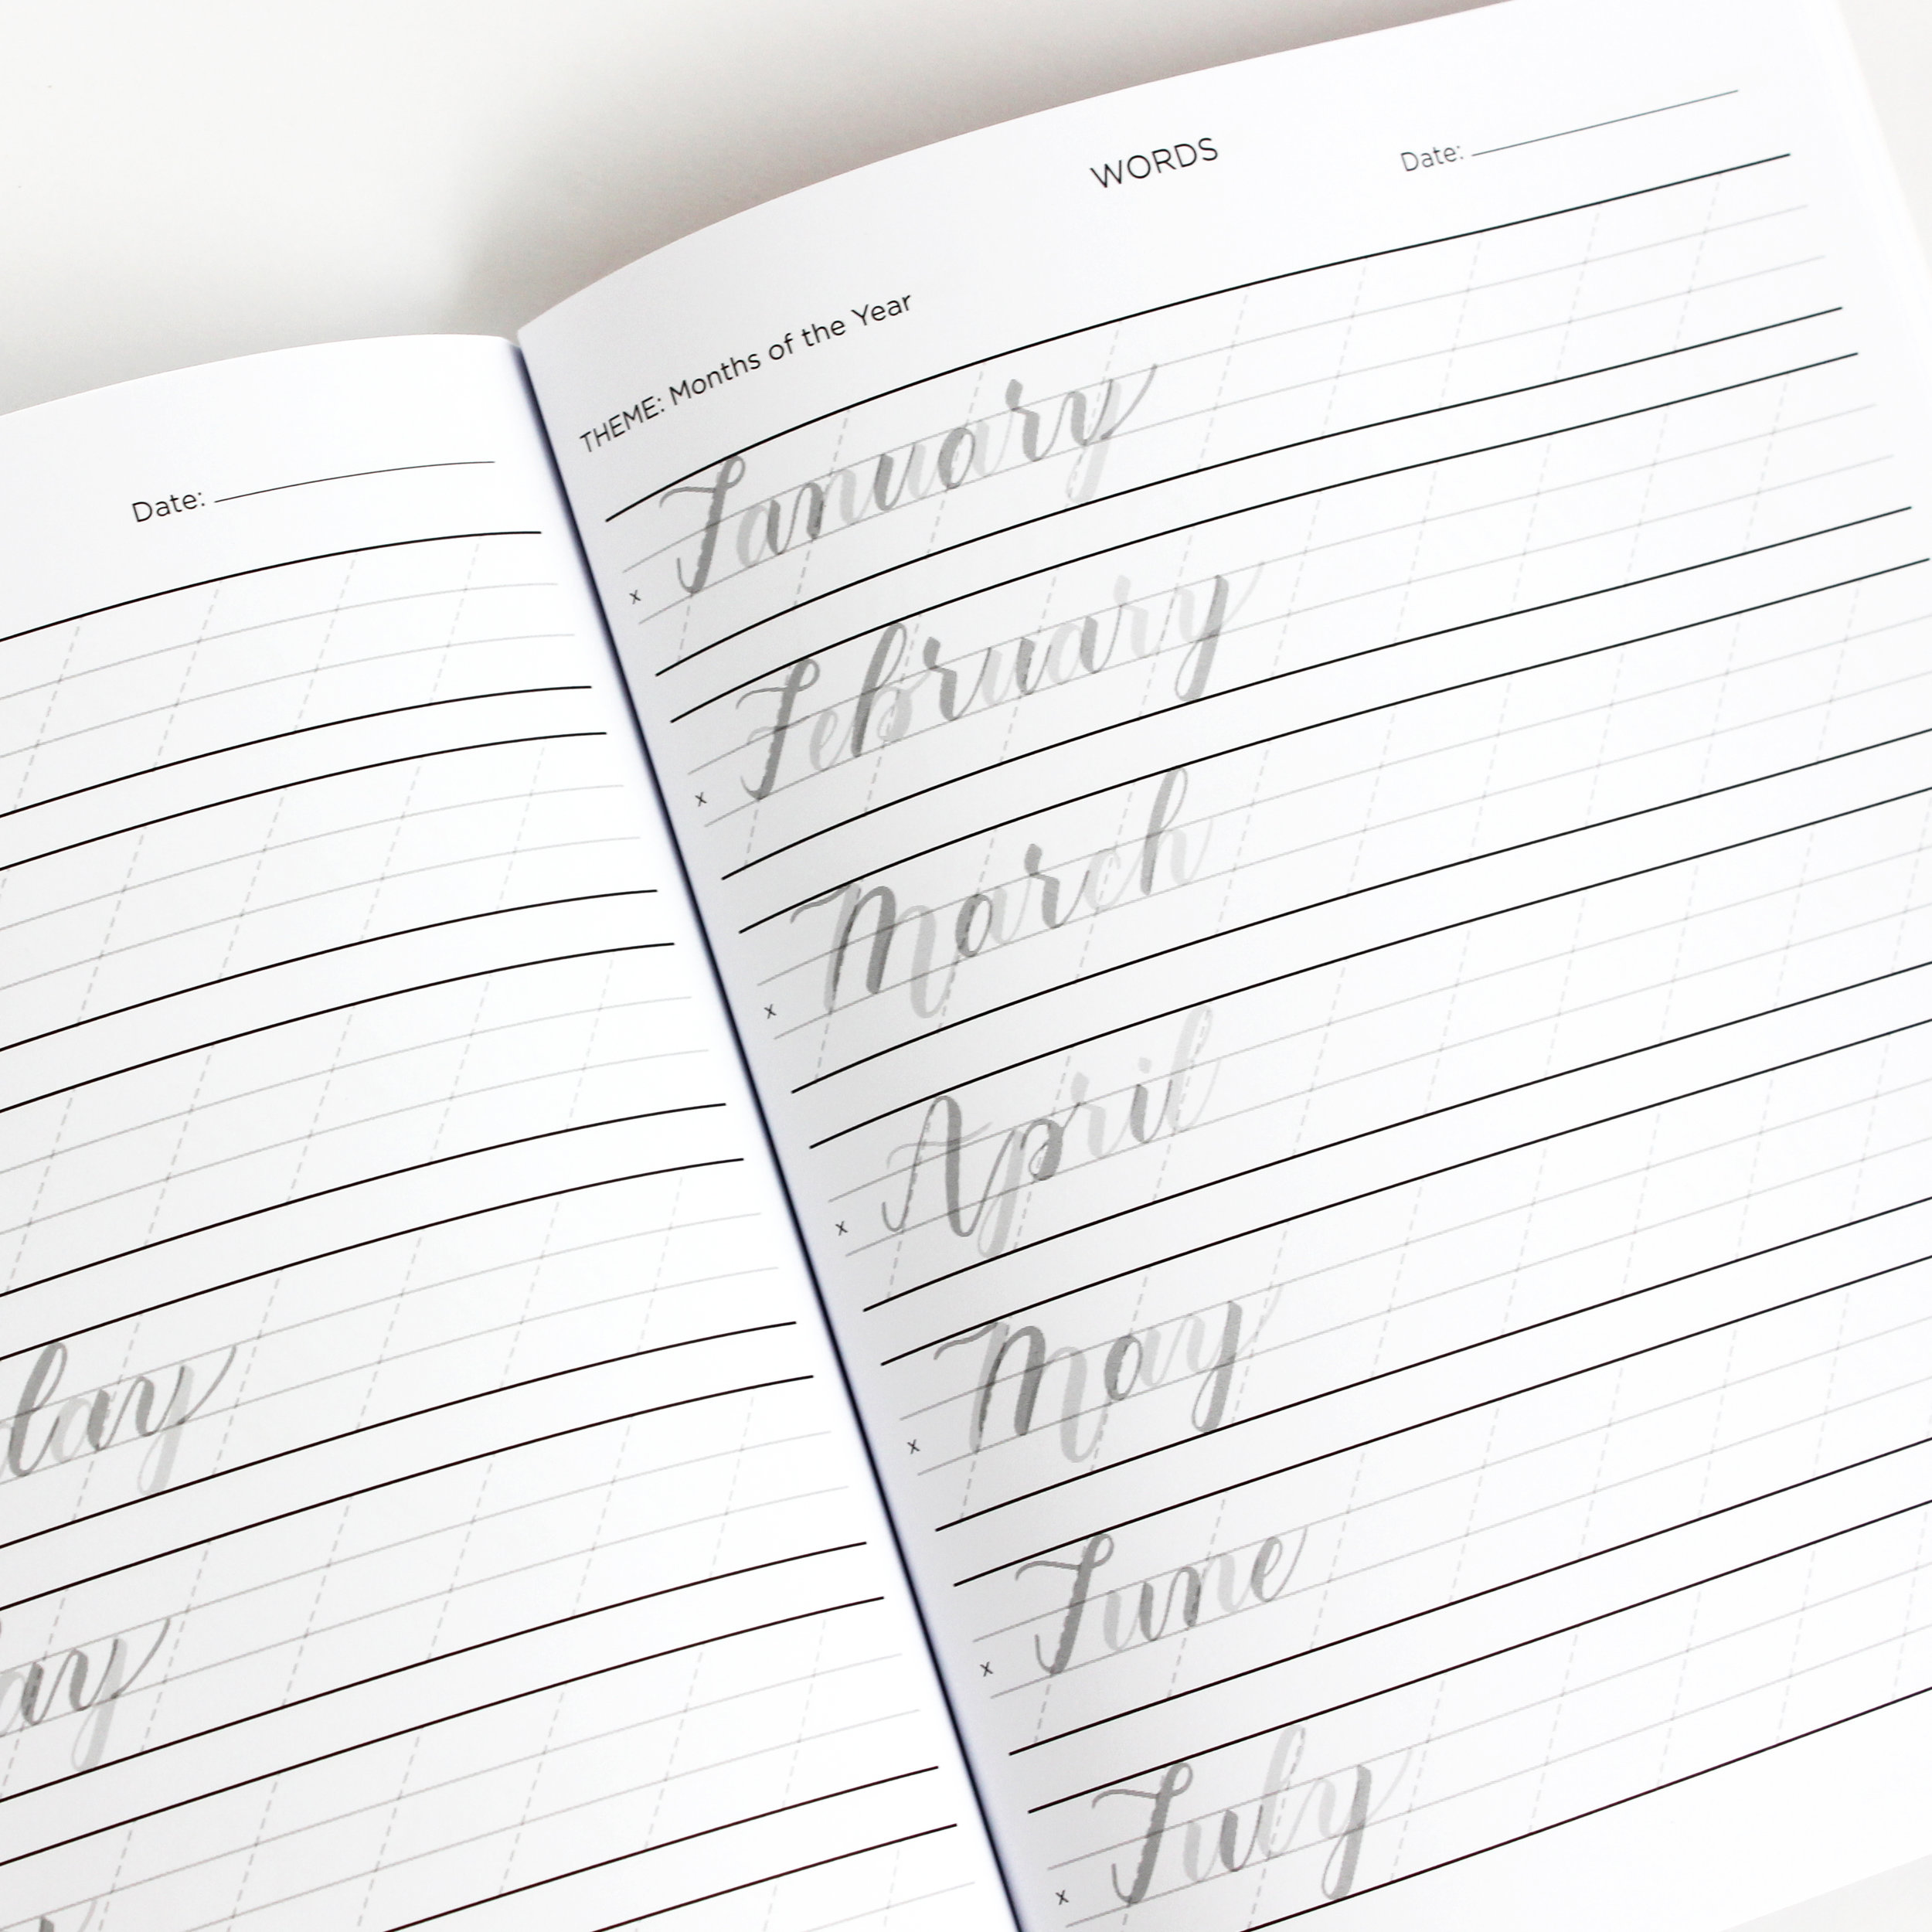 Date:
day
ay
WORDS
Date:
THEME: Months of the Year
January
x
February
x
March
x
April
x
May
x
June
x
July
x